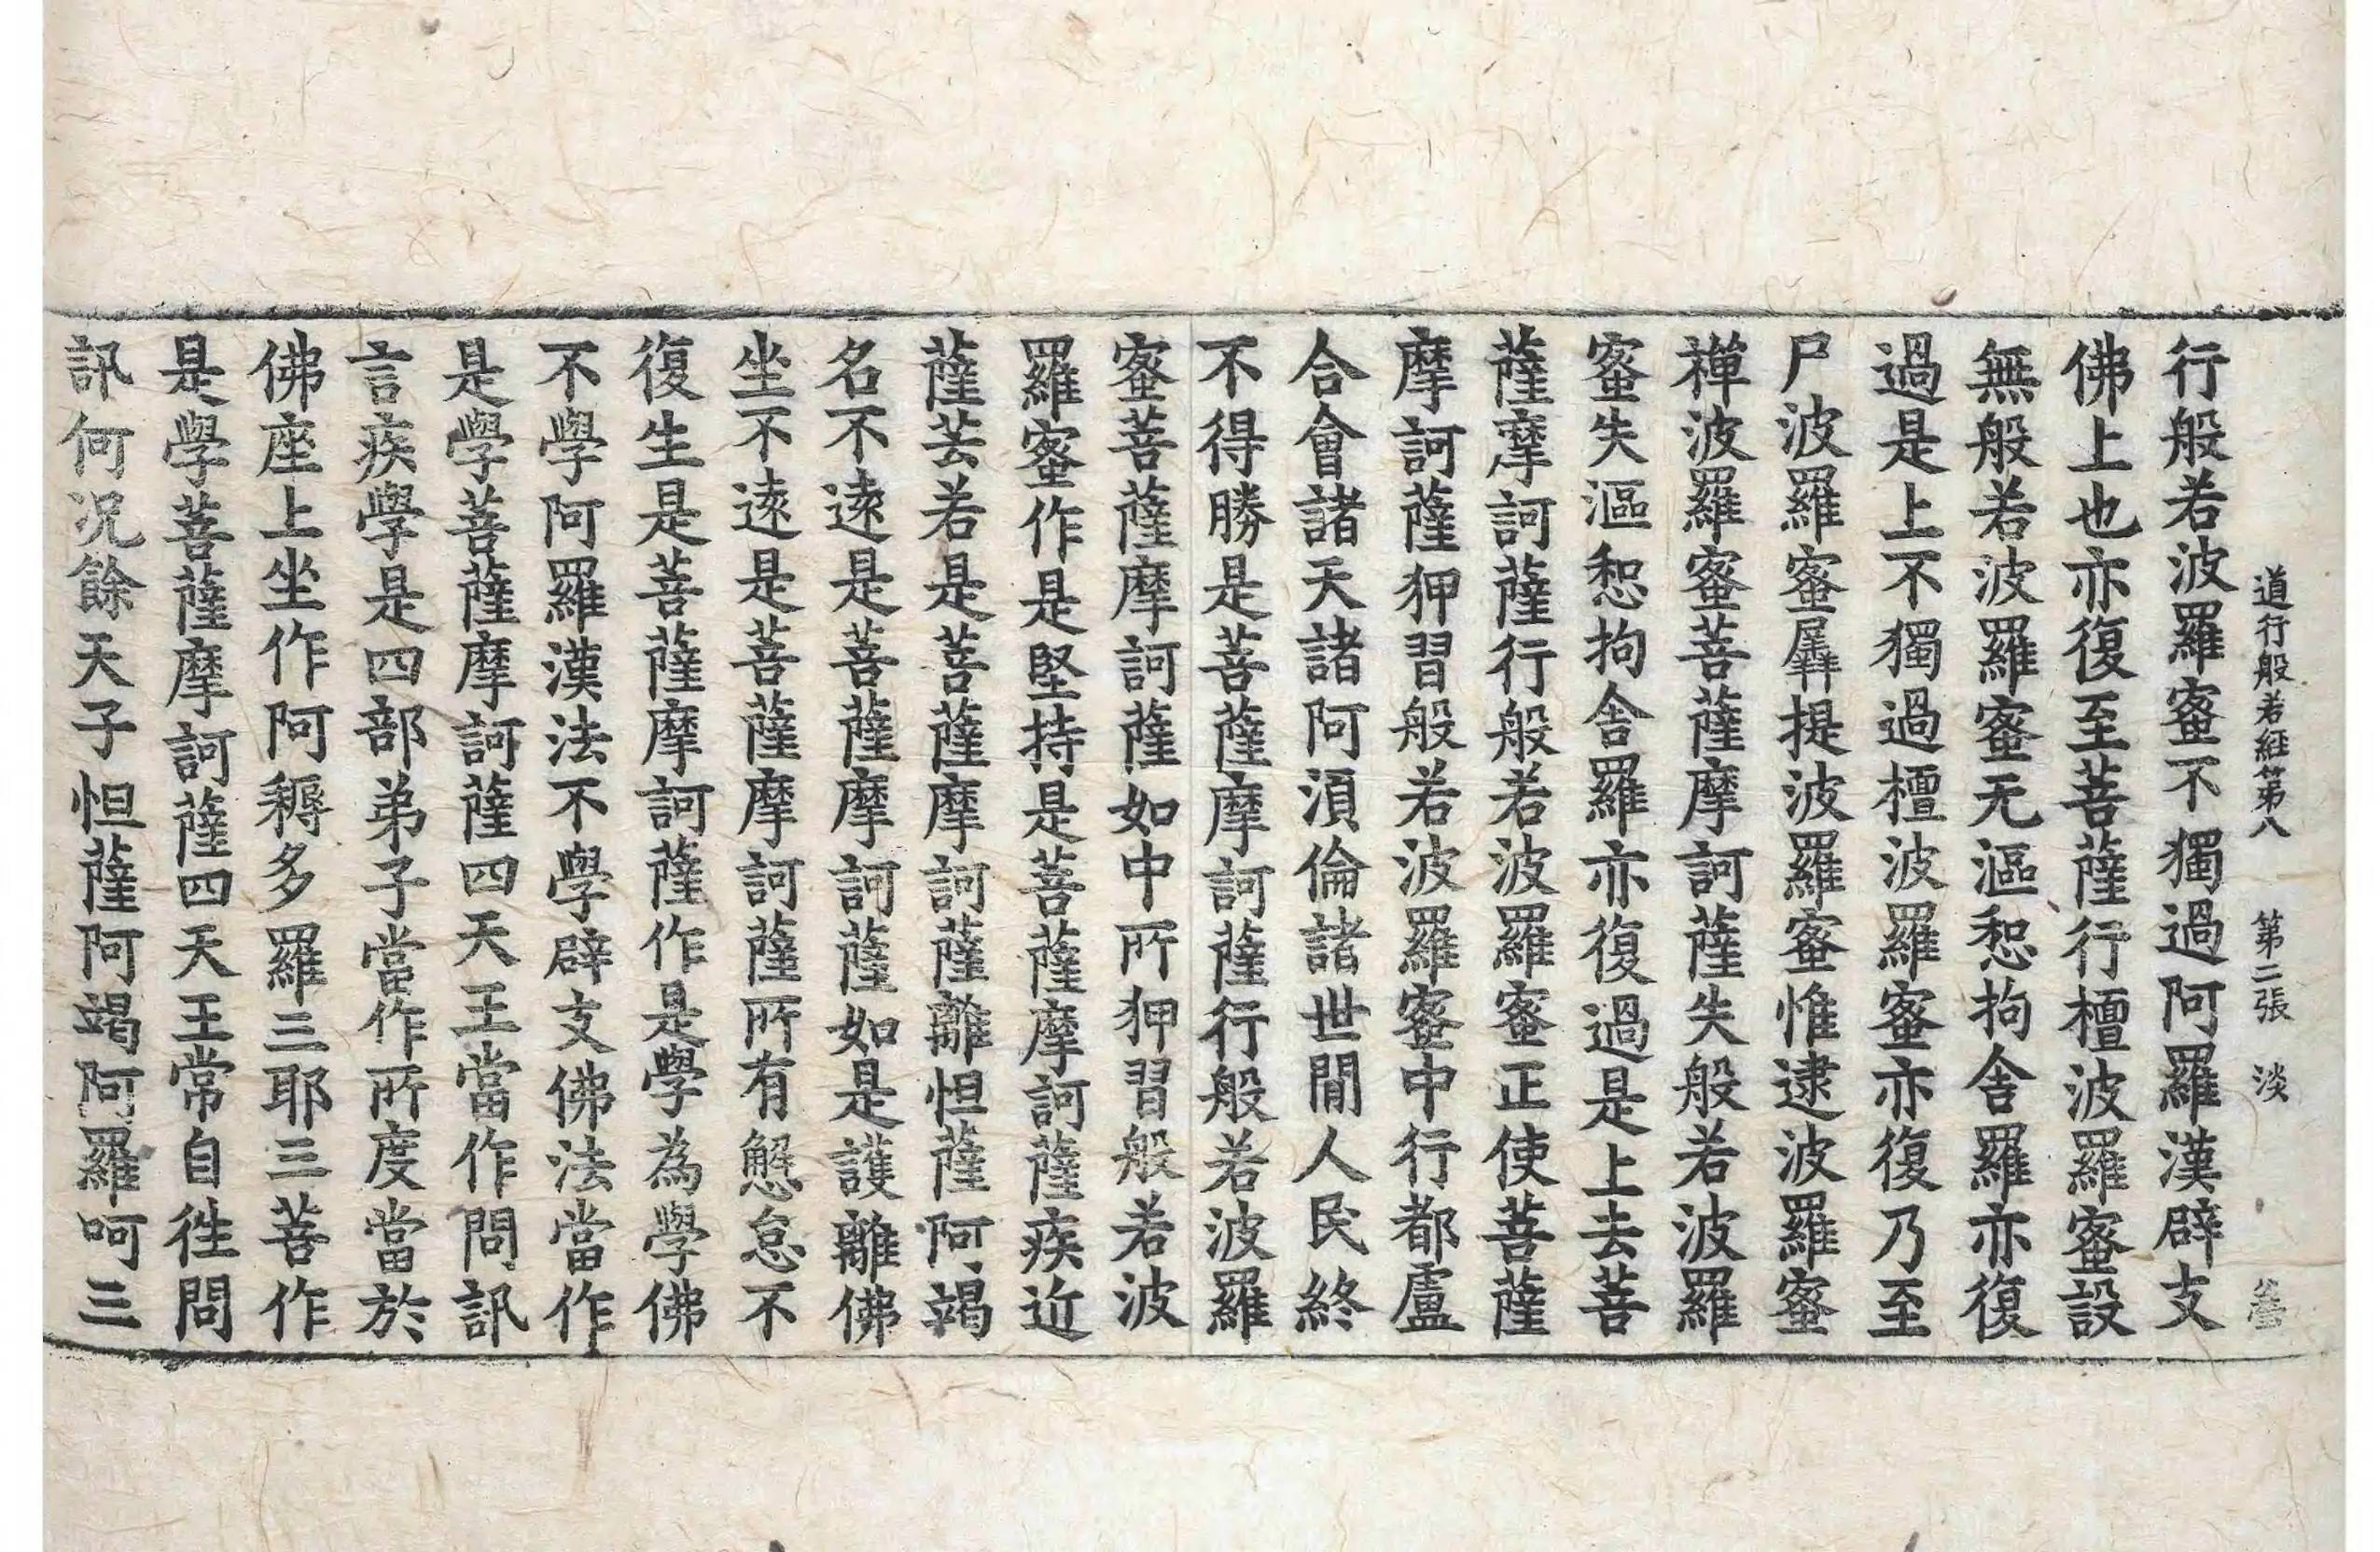 道行般若經第八　第二張　淡
行般若波羅蜜不獨過阿羅漢辟支
佛上也亦復至菩薩行檀波羅蜜設
無般若波羅蜜无漚惒拘舍羅亦復
過是上不獨過檀波羅蜜亦復乃至
尸波羅蜜羼提波羅蜜惟逮波羅蜜
禪波羅蜜菩薩摩訶薩失般若波羅
蜜失漚惒拘舍羅亦復過是上去菩
薩摩訶薩行般若波羅蜜正使菩薩
摩訶薩狎習般若波羅蜜中行都盧
合會諸天諸阿湏倫諸世間人民終
不得勝是菩薩摩訶薩行般若波羅
蜜菩薩摩訶薩如中所狎習般若波
羅蜜作是堅持是菩薩摩訶薩疾近
薩芸若是菩薩摩訶薩離怛薩阿竭
名不遠是菩薩摩訶薩如是護離佛
坐不遠是菩薩摩訶薩所有懈怠不
復生是菩薩摩訶薩作是學為學佛
不學阿羅漢法不學辟支佛法當作
是學菩薩摩訶薩四天王當作問訊
言疾學是四部弟子當作所度當於
佛座上坐作阿耨多羅三耶三菩作
是學菩薩摩訶薩四天王常自徃問
訊何况餘天子怛薩阿竭阿羅呵三